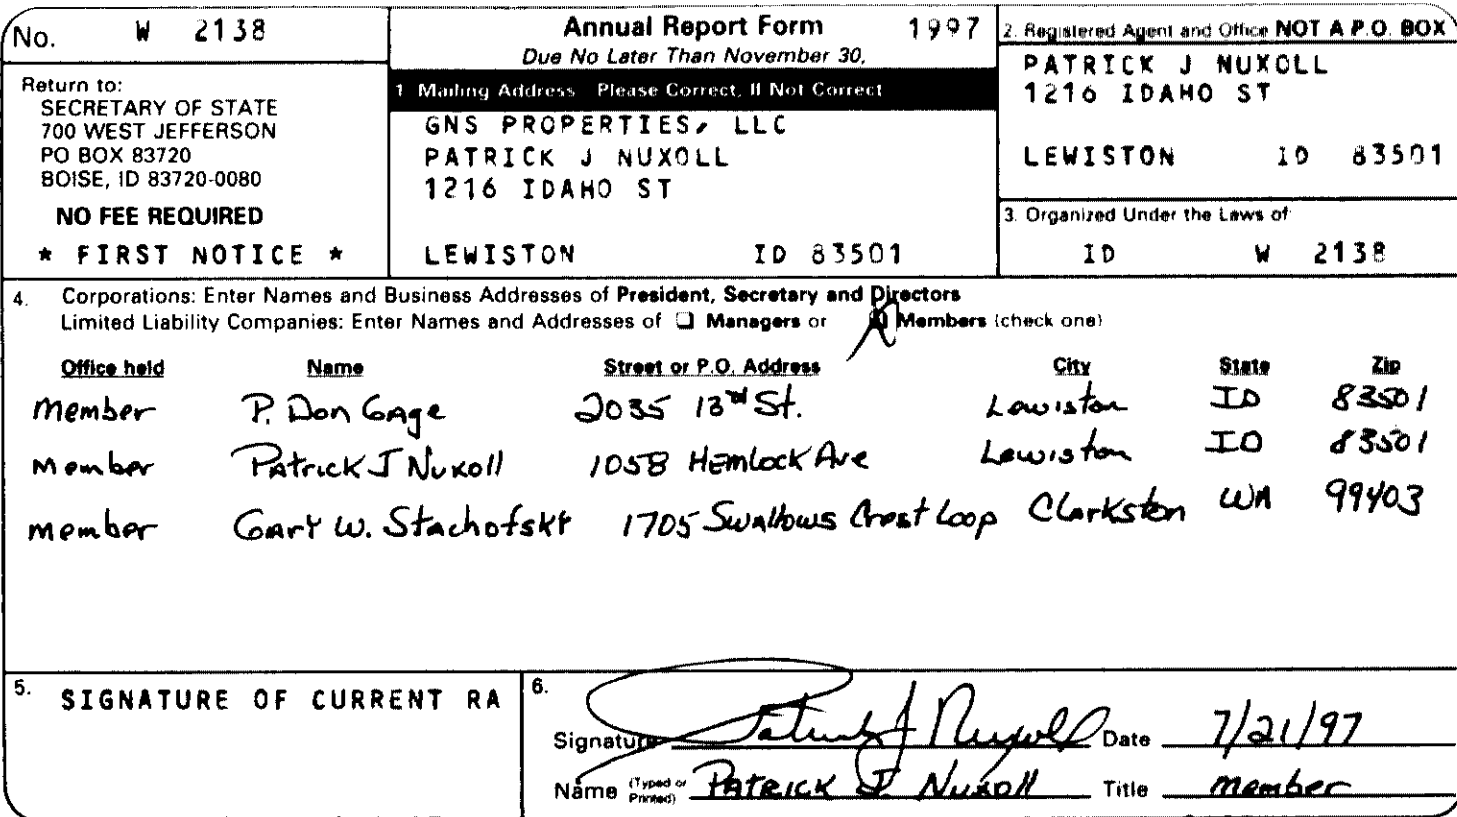 No. W 2138
Return to:
SECRETARY OF STATE
700 WEST JEFFERSON
PO BOX 83720
BOISE, ID 83720-0080
NO FEE REQUIRED
* FIRST NOTICE *
Annual Report Form 1997
Due No Later Than November 30,
1 Mailing Address Please Correct, If Not Correct
GNS PROPERTIES, LLC
PATRICK J NUXOLL
1216 IDAHO ST
LEWISTON ID 83501
2. Registered Agent and Office NOT A P.O. BOX
PATRICK J NUXOLL
1216 IDAHO ST
LEWISTON ID 83501
3. Organized Under the Laws of:
ID W 2138
4. Corporations: Enter Names and Business Addresses of President, Secretary and Directors
Limited Liability Companies: Enter Names and Addresses of ☐ Managers or ☒ Members (check one)
Office held Name Street or P.O. Address City State Zip
Member P. Don Gage 2035 13th St. Lewiston ID 83501
Member Patrick J Nuxoll 1058 Hemlock Ave Lewiston ID 83501
Member Gary W. Stachofsky 1705 Swallows Crest Loop Clarkston WA 99403
5. SIGNATURE OF CURRENT RA
6.
Signature Patrick J Nuxoll Date 7/21/97
Name (Typed or Printed) PATRICK J. NUXOLL Title Member